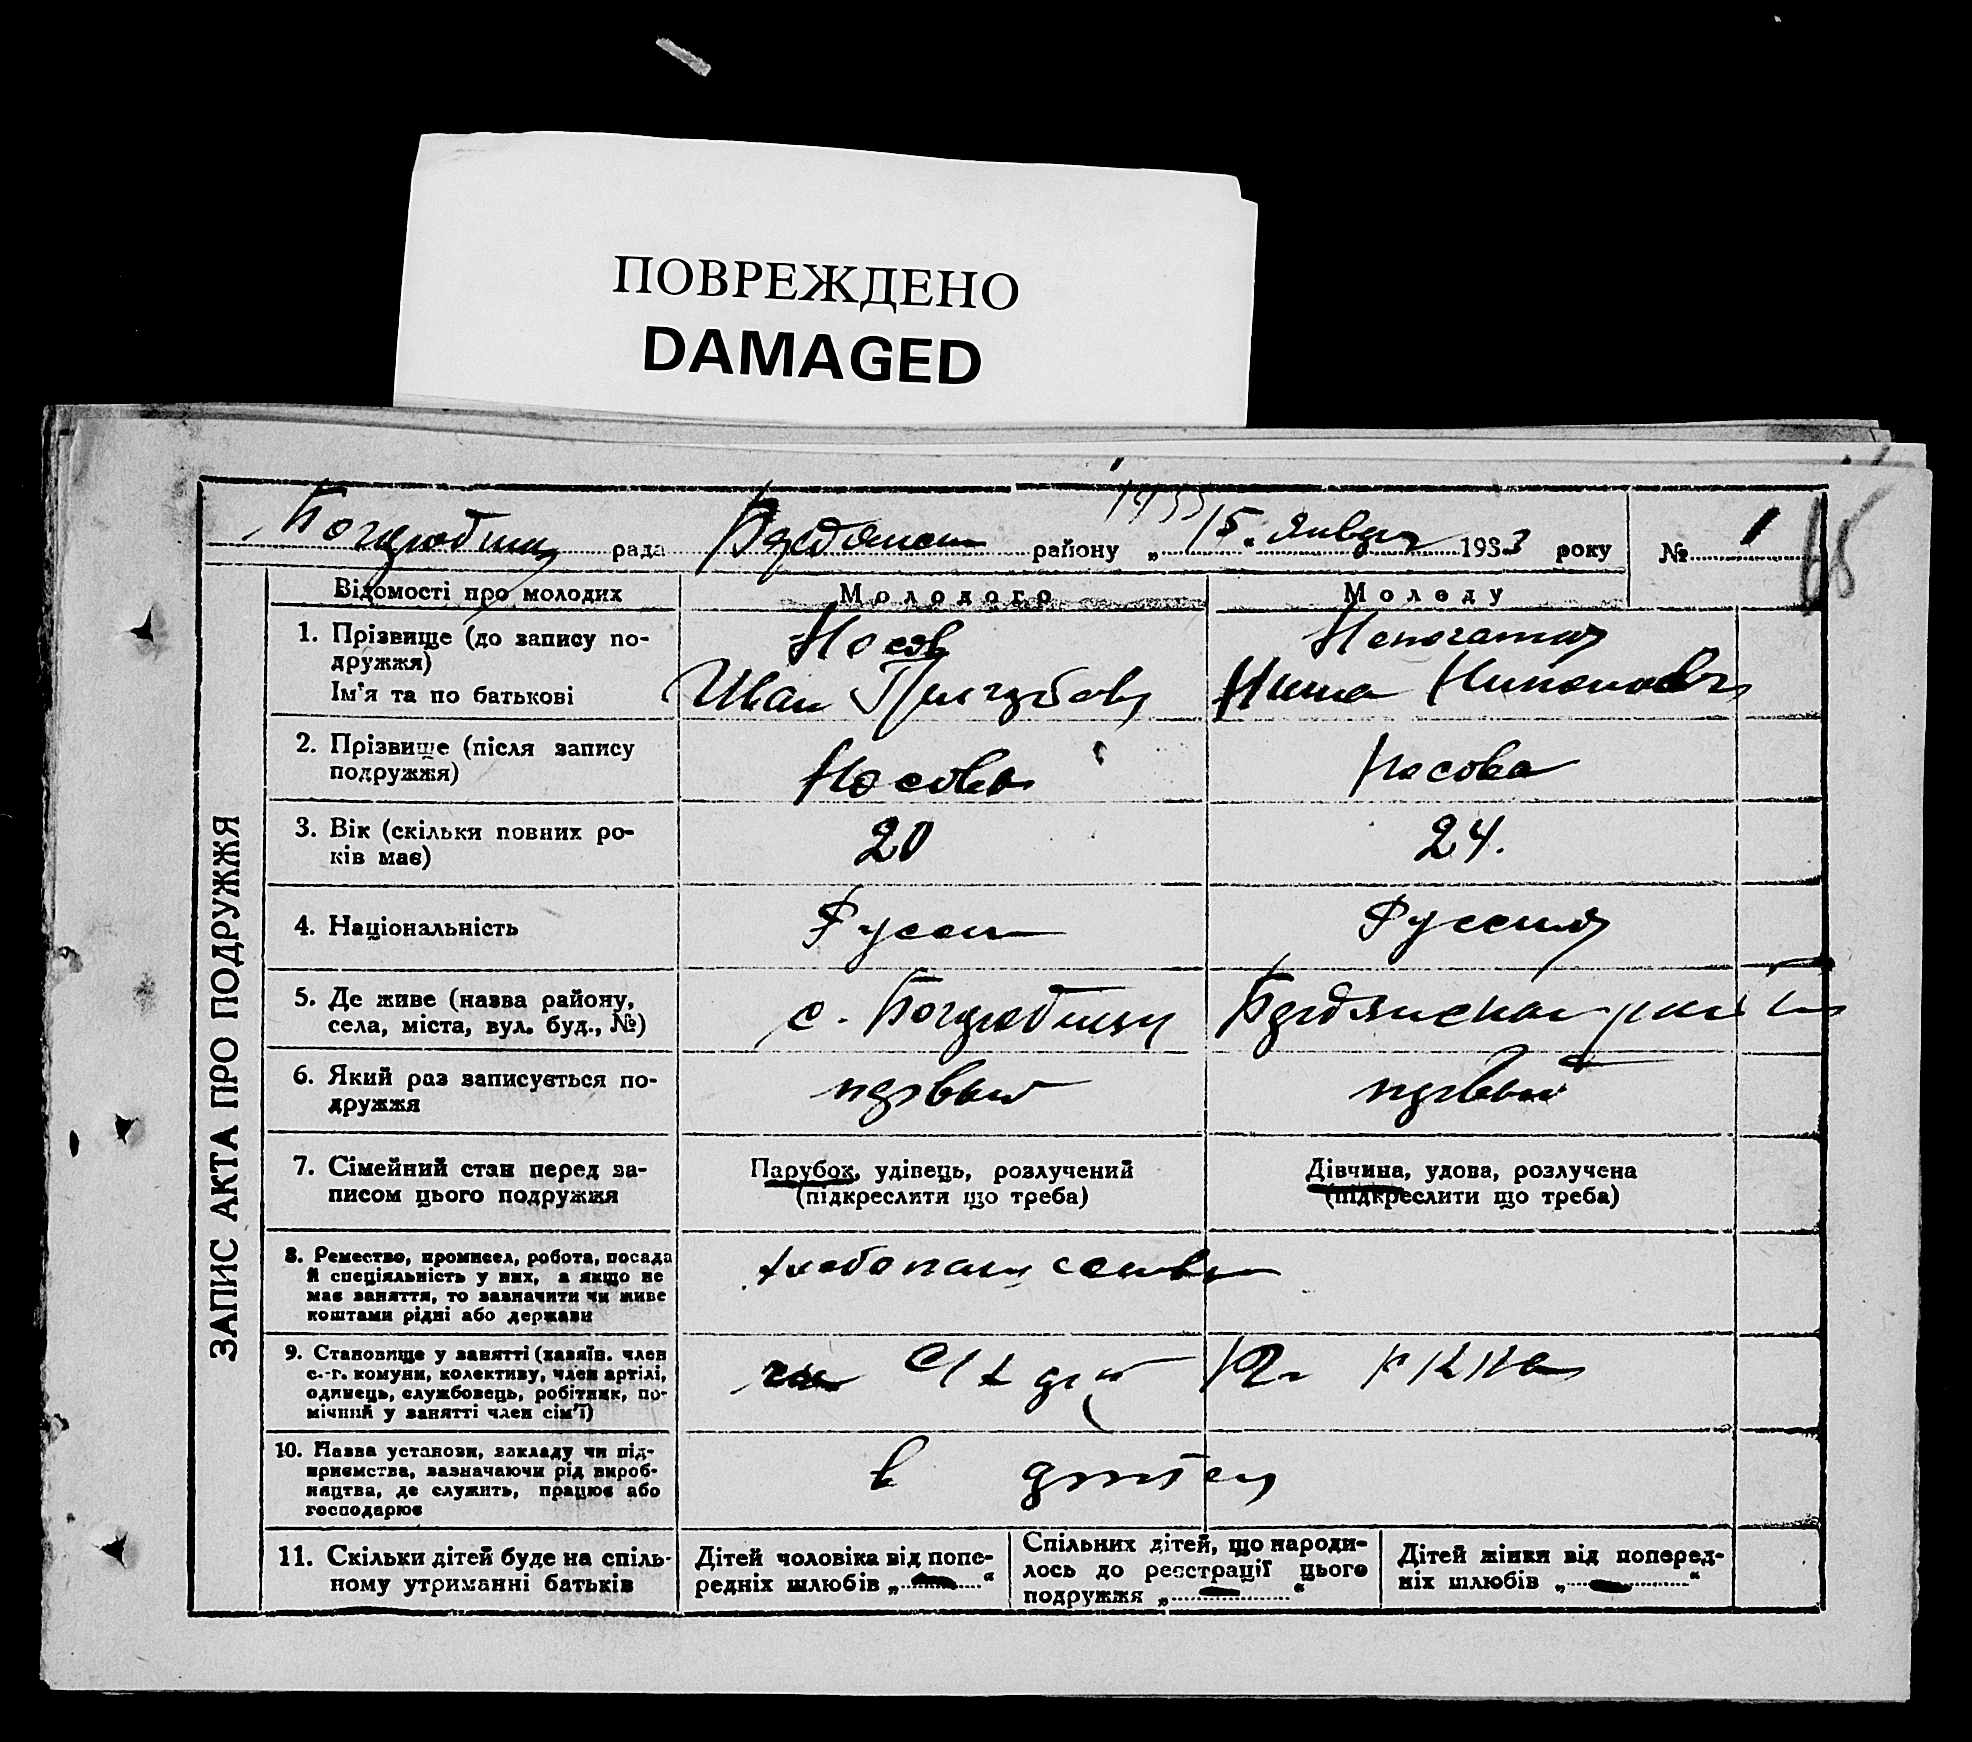 ПОВРЕЖДЕНО
DAMAGED
1933
рада района району „ 15 „ января 1933 року № 1
68
ЗАПИС АКТА ПРО ПОДРУЖЖЯ
Відомості про молодих
Молодого
Молоду
1. Прізвище (до запису по-
дружжя)
Ім'я та по батькові
Носов
Иван
Непогатая
Нина
2. Прізвище (після запису
подружжя)
Носовы
Носова
3. Вік (скільки повних ро-
ків має)
20
24.
4. Національність
Русск
Русская
5. Де живе (назва району,
села, міста, вул. буд., №)
с.
Бердянского
6. Який раз записується по-
дружжя
первый
первый
7. Сімейний стан перед за-
писом цього подружжя
Парубок, удівець, розлучений
(підкреслити що треба)
Дівчина, удова, розлучена
(підкреслити що треба)
8. Ремество, промисел, робота, посада
й спеціяльність у них, а якщо не
має заняття, то зазначити чи живе
коштами рідні або держави
хлебопашество
9. Становище у занятті (хазяїн, член
с.-г. комуни, колективу, член артілі,
одинець, службовець, робітник, по-
мічний у занятті член сім'ї)
10. Назва установи, закладу чи під-
приємства, зазначаючи рід вироб-
ництва, де служить, працює або
господарює
в
11. Скільки дітей буде на спіль-
ному утриманні батьків
Дітей чоловіка від попе-
редніх шлюбів „ — “
Спільних дітей, що народи-
лось до реєстрації цього
подружжя „ — “
Дітей жінки від поперед-
ніх шлюбів „ — “